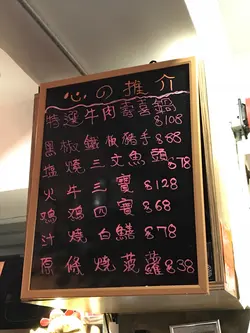 心の推介
特選牛肉壽喜鍋 $108
黑椒鐵板豬手 $88
塩燒三文魚頭 $78
火牛三寶 $128
鷄鷄四寶 $68
汁燒白鱔 $78
原條燒菠蘿 $38